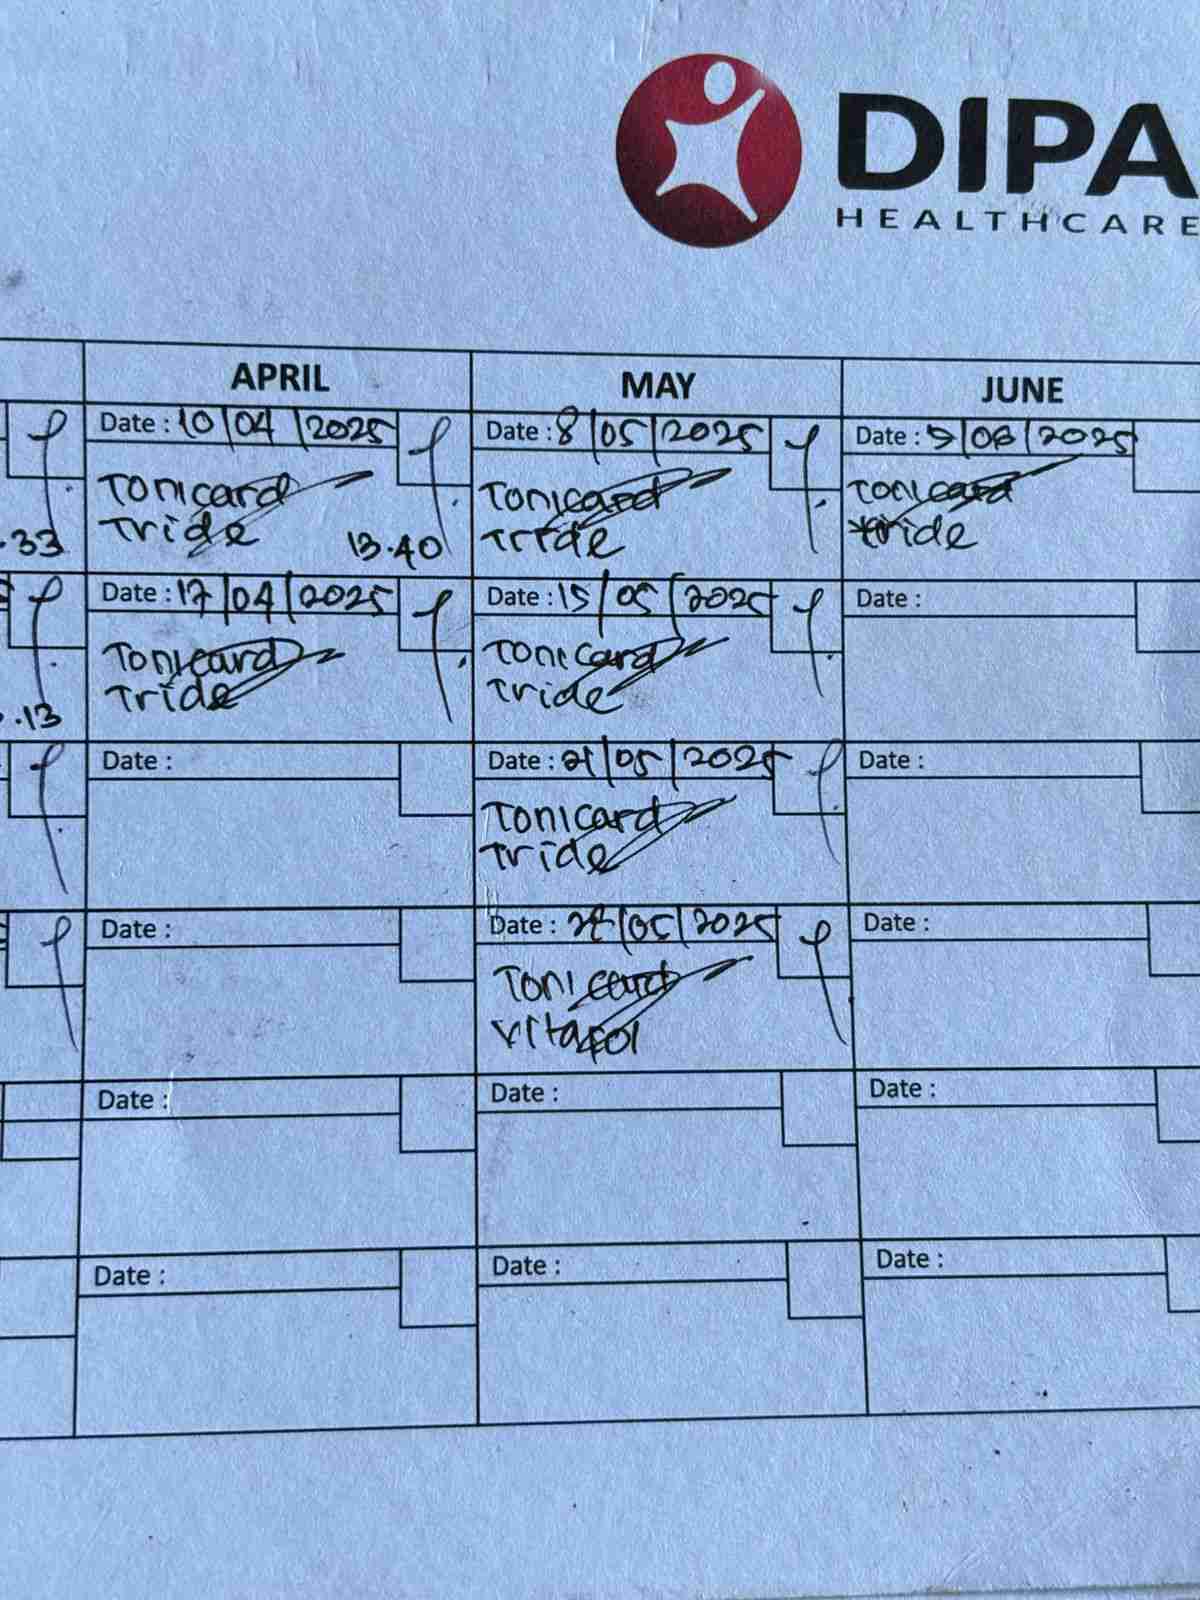 DIPA
HEALTHCARE
APRIL
MAY
JUNE
Date : 10/04/2025
Date : 8/05/2025
Date : 9/06/2025
Tonicard
Tride
13.40
Tonicard
Tride
Tonicard
Tride
.33
Date : 17/04/2025
Date : 15/05/2025
Date :
Tonicard
Tride
Tonicard
Tride
.13
Date :
Date : 21/05/2025
Date :
Tonicard
Tride
Date :
Date : /05/2025
Date :
Tonicard
Vitafol
Date :
Date :
Date :
Date :
Date :
Date :